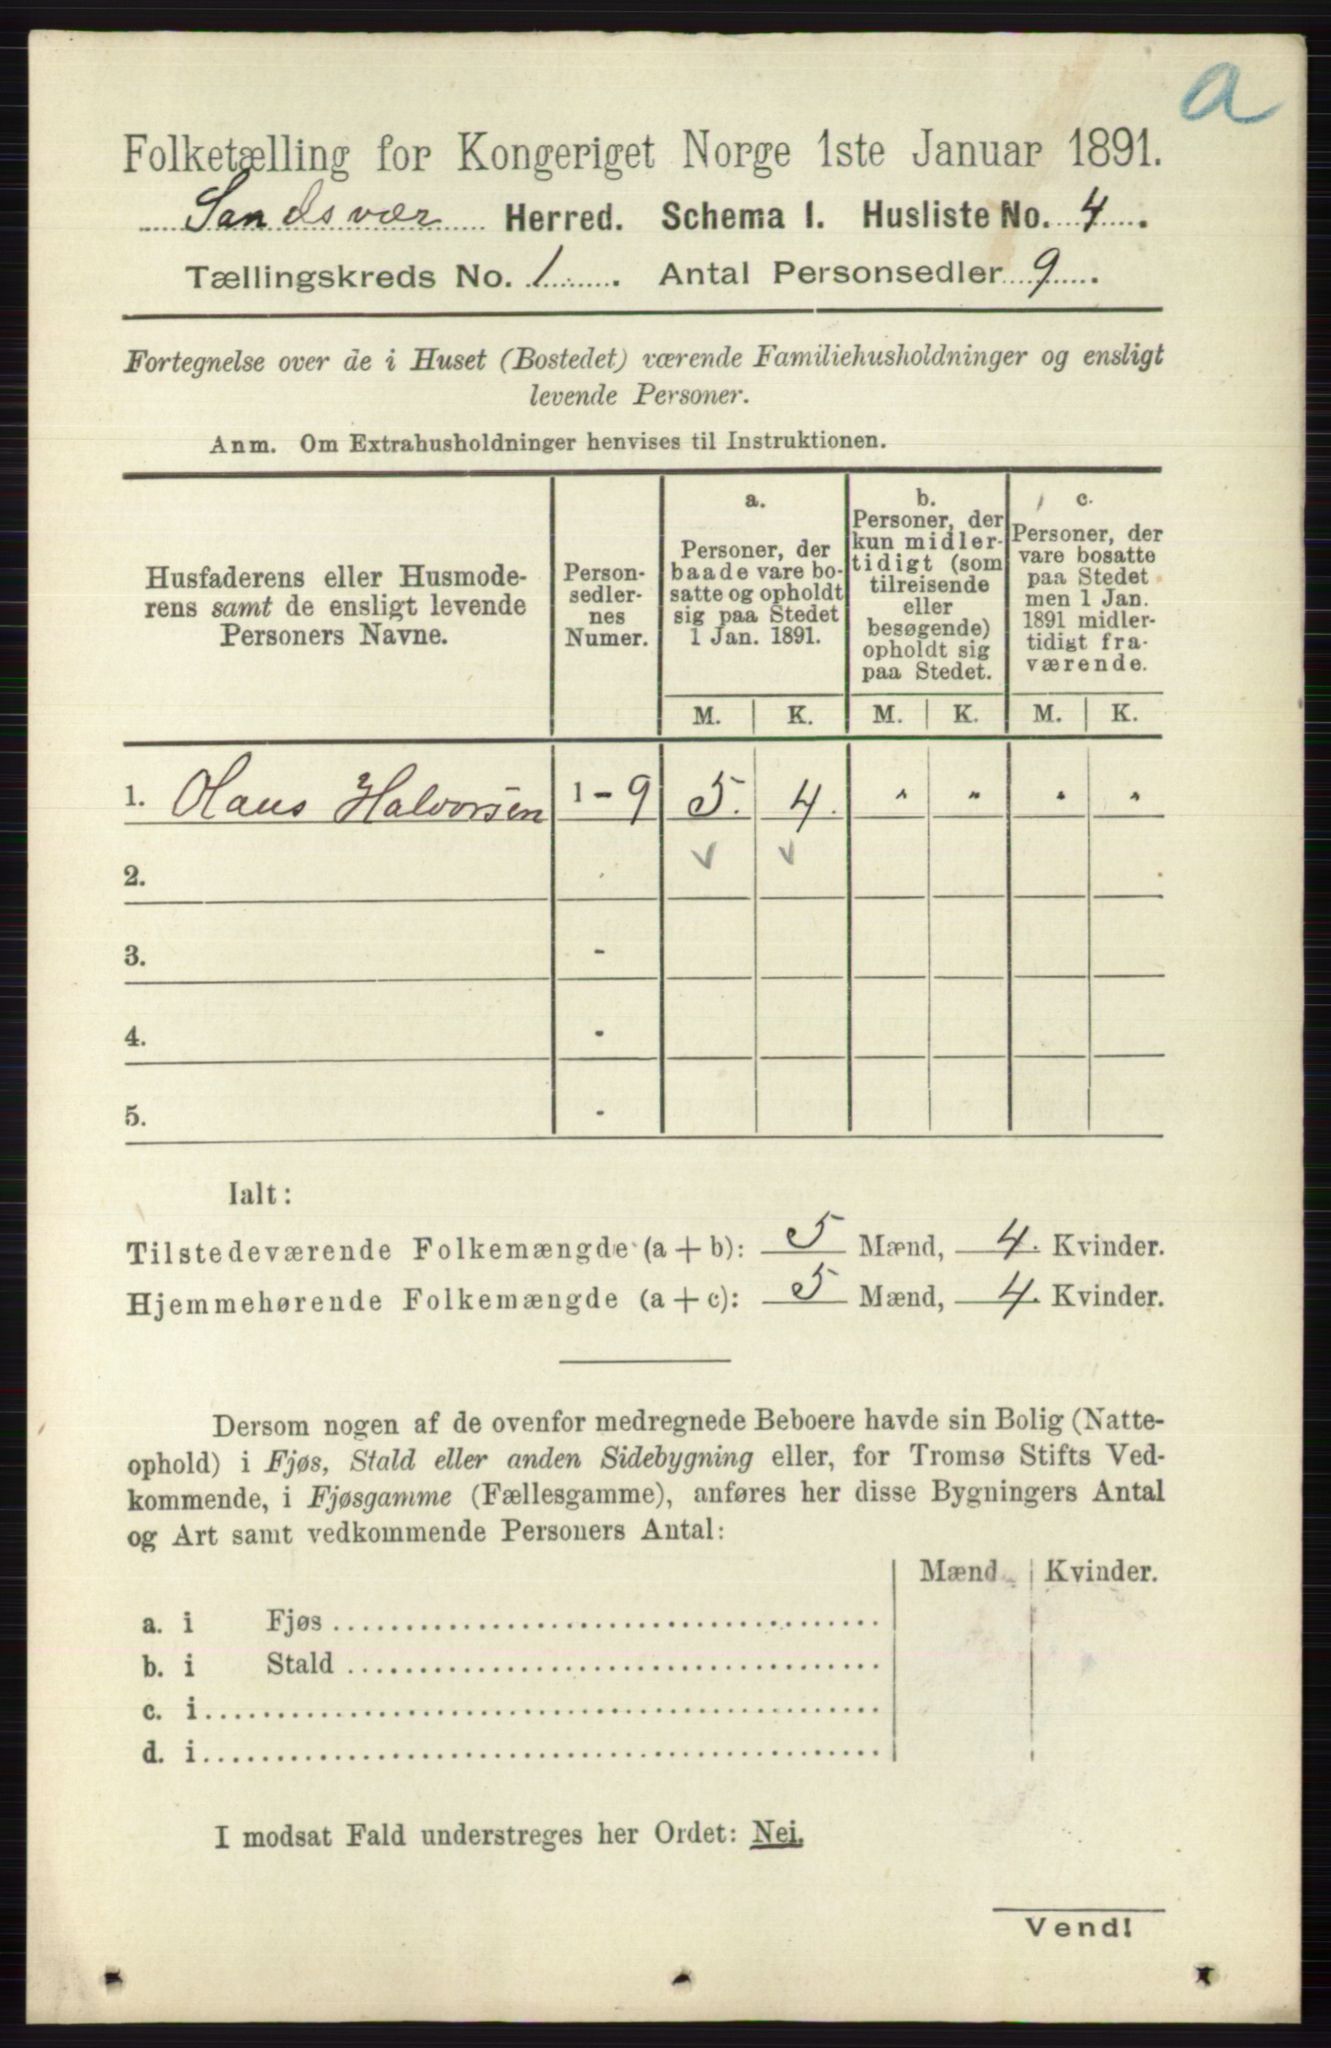 a
Folketælling for Kongeriget Norge 1ste Januar 1891.
Sandsvær Herred. Schema I. Husliste No. 4.
Tællingskreds No. 1. Antal Personsedler 9.
Fortegnelse over de i Huset (Bostedet) værende Familiehusholdninger og ensligt
levende Personer.
Anm. Om Extrahusholdninger henvises til Instruktionen.
Husfaderens eller Husmode-
rens samt de ensligt levende
Personers Navne.
Person-
sedler-
nes
Numer.
a.
Personer, der
baade vare bo-
satte og opholdt
sig paa Stedet
1 Jan. 1891.
b.
Personer, der
kun midler-
tidigt (som
tilreisende
eller
besøgende)
opholdt sig
paa Stedet.
c.
Personer, der
vare bosatte
paa Stedet
men 1 Jan.
1891 midler-
tidigt fra-
værende.
M. K. M. K. M. K.
1. Olaus Halvorsen 1-9 5. 4. " " " "
2.
3. -
4. -
5. -
Ialt:
Tilstedeværende Folkemængde (a + b): 5 Mænd, 4. Kvinder.
Hjemmehørende Folkemængde (a + c): 5 Mænd, 4. Kvinder.
Dersom nogen af de ovenfor medregnede Beboere havde sin Bolig (Natte-
ophold) i Fjøs, Stald eller anden Sidebygning eller, for Tromsø Stifts Ved-
kommende, i Fjøsgamme (Fællesgamme), anføres her disse Bygningers Antal
og Art samt vedkommende Personers Antal:
Mænd Kvinder.
a. i Fjøs
b. i Stald
c. i
d. i
I modsat Fald understreges her Ordet: Nei.
Vend!